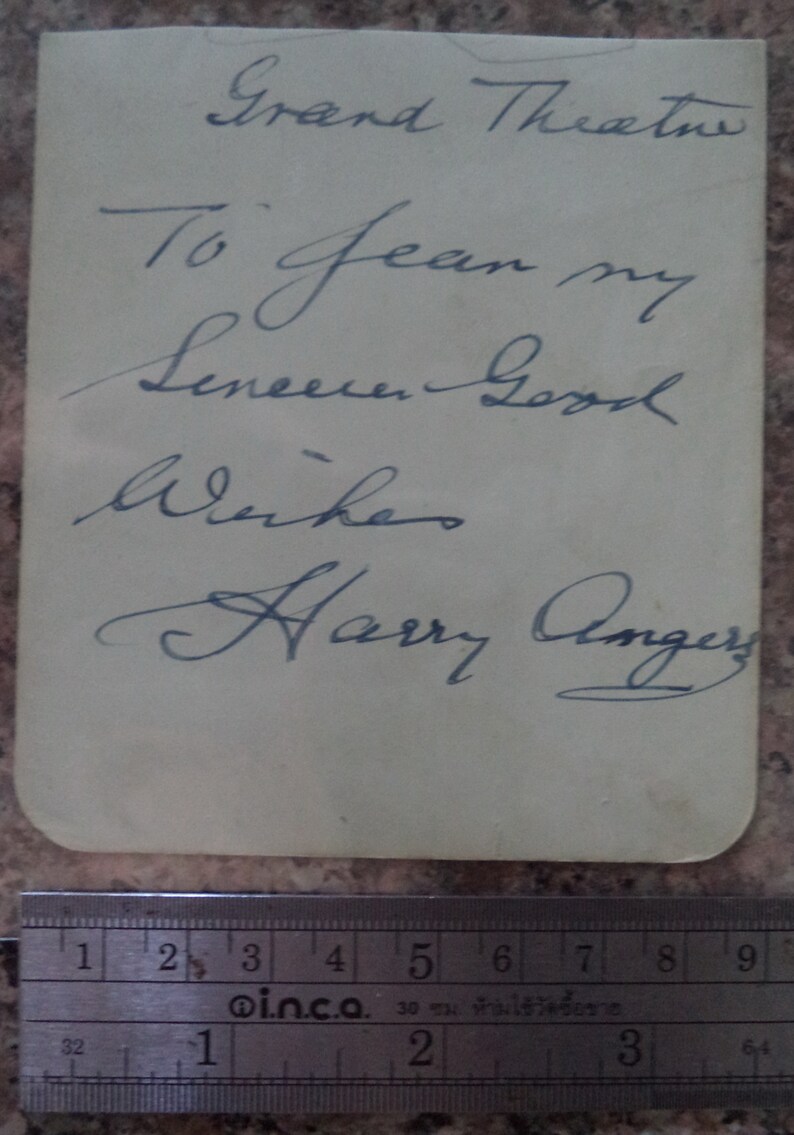 Grand Theatre
To Jean my
Sincere Good
Wishes
Harry Angers
1 2 3 4 5 6 7 8 9
i.n.c.a. 30 ซม. ห้ามใช้วัดซื้อขาย
32 1 2 3 64